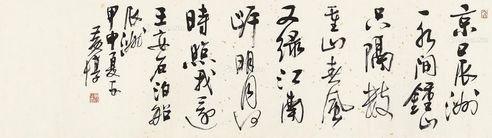 京口瓜洲
一水间钟山
只隔数
重山春风
又绿江南
岸明月何
时照我还
王安石泊船
瓜洲
甲申夏于